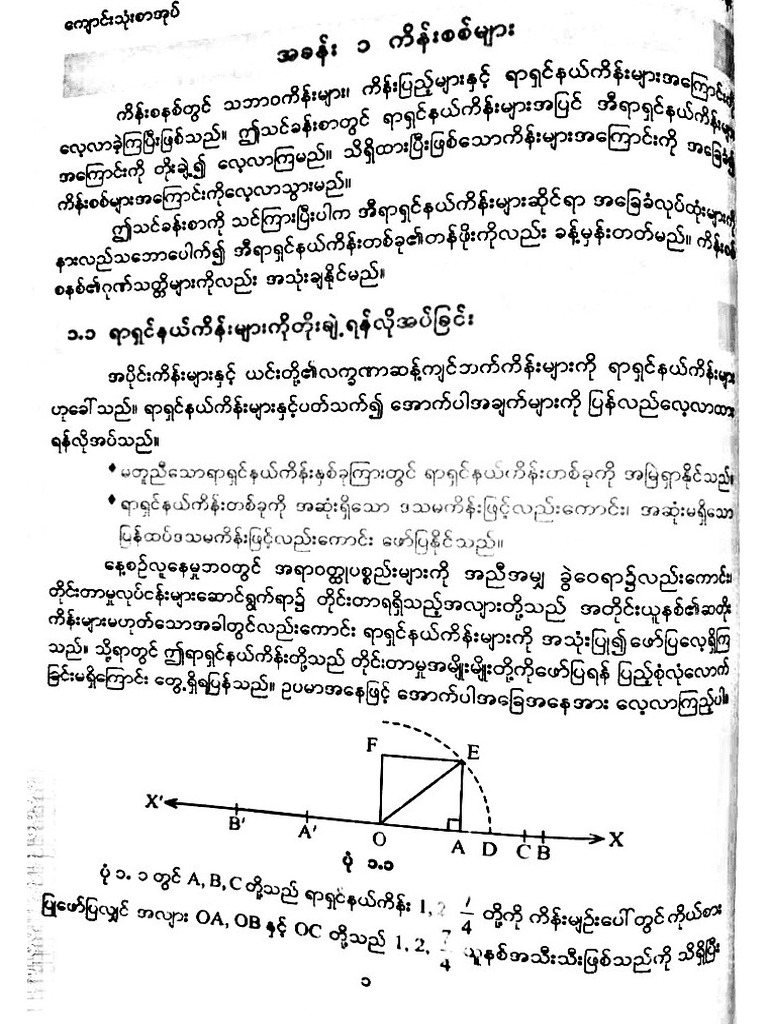 ကျောင်းသုံးစာအုပ်
အခန်း ၁ ကိန်းစစ်များ
ကိန်းစနစ်တွင် သဘာဝကိန်းများ၊ ကိန်းပြည့်များနှင့် ရာရှင်နယ်ကိန်းများအကြောင်းကို
လေ့လာခဲ့ကြပြီးဖြစ်သည်။ ဤသင်ခန်းစာတွင် ရာရှင်နယ်ကိန်းများအပြင် အီရာရှင်နယ်ကိန်းများ
အကြောင်းကို တိုးချဲ့၍ လေ့လာကြမည်။ သိရှိထားပြီးဖြစ်သောကိန်းများအကြောင်းကို အခြေခံ၍
ကိန်းစစ်များအကြောင်းကိုလေ့လာသွားမည်။
ဤသင်ခန်းစာကို သင်ကြားပြီးပါက အီရာရှင်နယ်ကိန်းများဆိုင်ရာ အခြေခံလုပ်ထုံးများကို
နားလည်သဘောပေါက်၍ အီရာရှင်နယ်ကိန်းတစ်ခု၏တန်ဖိုးကိုလည်း ခန့်မှန်းတတ်မည်။ ကိန်းစစ်
စနစ်၏ဂုဏ်သတ္တိများကိုလည်း အသုံးချနိုင်မည်။
၁.၁ ရာရှင်နယ်ကိန်းများကိုတိုးချဲ့ရန်လိုအပ်ခြင်း
အပိုင်းကိန်းများနှင့် ယင်းတို့၏လက္ခဏာဆန့်ကျင်ဘက်ကိန်းများကို ရာရှင်နယ်ကိန်းများ
ဟုခေါ်သည်။ ရာရှင်နယ်ကိန်းများနှင့်ပတ်သက်၍ အောက်ပါအချက်များကို ပြန်လည်လေ့လာထား
ရန်လိုအပ်သည်။
• မတူညီသောရာရှင်နယ်ကိန်းနှစ်ခုကြားတွင် ရာရှင်နယ်ကိန်းတစ်ခုကို အမြဲရှာနိုင်သည်။
• ရာရှင်နယ်ကိန်းတစ်ခုကို အဆုံးရှိသော ဒသမကိန်းဖြင့်လည်းကောင်း၊ အဆုံးမရှိသော
ပြန်ထပ်ဒသမကိန်းဖြင့်လည်းကောင်း ဖော်ပြနိုင်သည်။
နေ့စဉ်လူနေမှုဘဝတွင် အရာဝတ္ထုပစ္စည်းများကို အညီအမျှ ခွဲဝေရာ၌လည်းကောင်း၊
တိုင်းတာမှုလုပ်ငန်းများဆောင်ရွက်ရာ၌ တိုင်းတာရရှိသည့်အလျားတို့သည် အတိုင်းယူနစ်၏ဆတိုး
ကိန်းများမဟုတ်သောအခါတွင်လည်းကောင်း ရာရှင်နယ်ကိန်းများကို အသုံးပြု၍ဖော်ပြလေ့ရှိကြ
သည်။ သို့ရာတွင် ဤရာရှင်နယ်ကိန်းတို့သည် တိုင်းတာမှုအမျိုးမျိုးတို့ကိုဖော်ပြရန် ပြည့်စုံလုံလောက်
ခြင်းမရှိကြောင်း တွေ့ရှိရပြန်သည်။ ဥပမာအနေဖြင့် အောက်ပါအခြေအနေအား လေ့လာကြည့်ပါ။
F E
X′ B′ A′ O A D C B X
ပုံ ၁.၁
ပုံ ၁.၁ တွင် A, B, C တို့သည် ရာရှင်နယ်ကိန်း 1, 2, 7/4 တို့ကို ကိန်းမျဉ်းပေါ်တွင်ကိုယ်စား
ပြုဖော်ပြလျှင် အလျား OA, OB နှင့် OC တို့သည် 1, 2, 7/4 ယူနစ်အသီးသီးဖြစ်သည်ကို သိရှိပြီး
၁